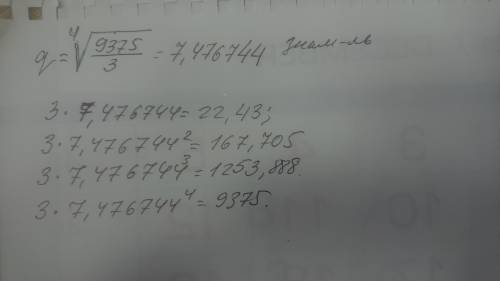 q = ⁴√(9375/3) = 7,476744 знам-ль
3 · 7,476744 = 22,43;
3 · 7,476744² = 167,705
3 · 7,476744³ = 1253,888.
3 · 7,476744⁴ = 9375.